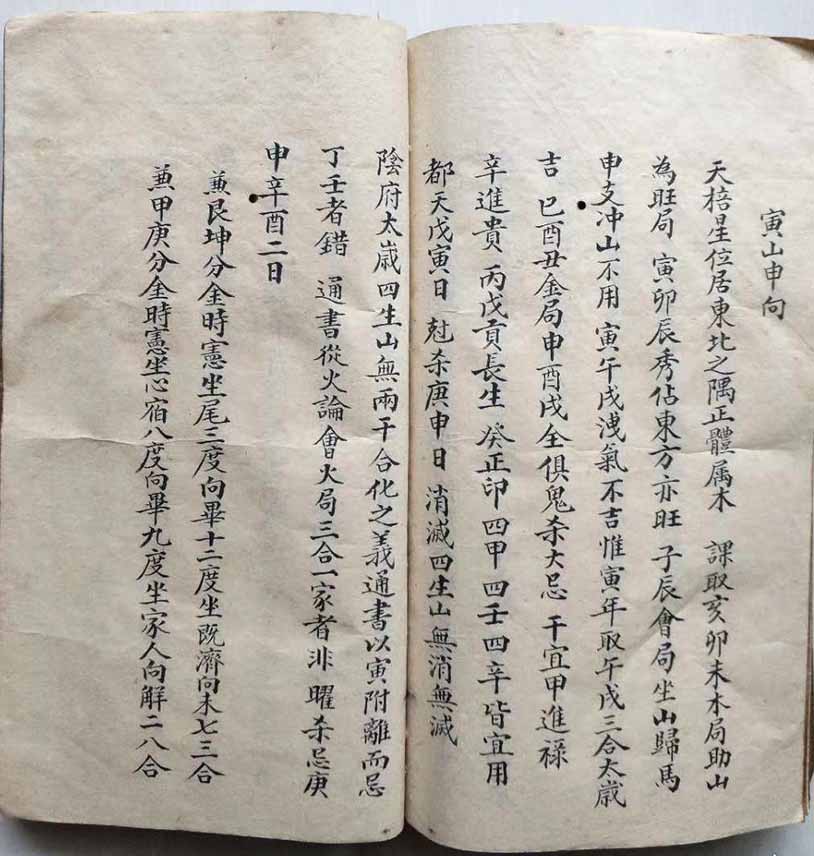 寅山申向
天棓星位居東北之隅正體属木 課取亥卯未木局助山
為旺局 寅卯辰秀佔東方亦旺 子辰會局坐山歸馬
申支冲山不用 寅午戌洩氣不吉惟寅年取午戌三合太歲
吉 巳酉丑金局申酉戌全俱鬼杀大忌 干宜甲進禄
辛進貴 丙戊貢長生 癸正印 四甲四壬四辛皆宜用
都天戊寅日 尅杀庚申日 消滅四生山無消無滅
陰府太歲四生山無兩干合化之義通書以寅附離而忌
丁壬者錯 通書從火論會火局三合一家者非 曜杀忌庚
申辛酉二日
兼艮坤分金時憲坐尾三度向畢十二度坐既濟向未七三合
兼甲庚分金時憲坐心宿八度向畢九度坐家人向解二八合